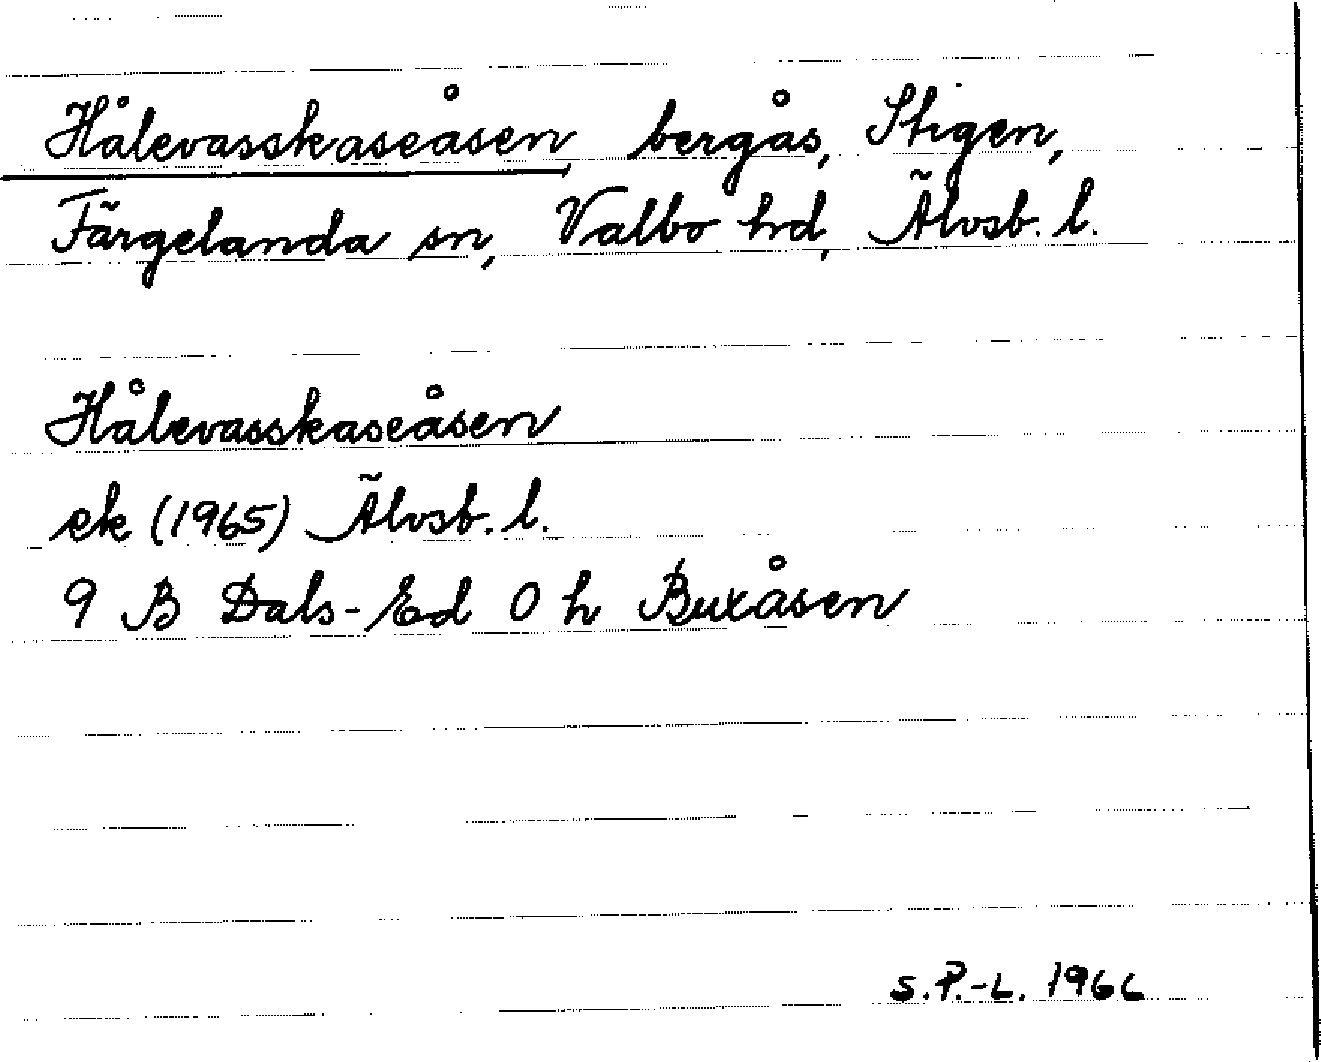 Hålevasskaseåsen, bergås, Stigen,
Färgelanda sn, Valbo hd, Älvsb. l.
Hålevasskaseåsen
ek (1965) Älvsb. l.
9 B Dals-Ed 0 h Buxåsen
S.P.-L. 1966